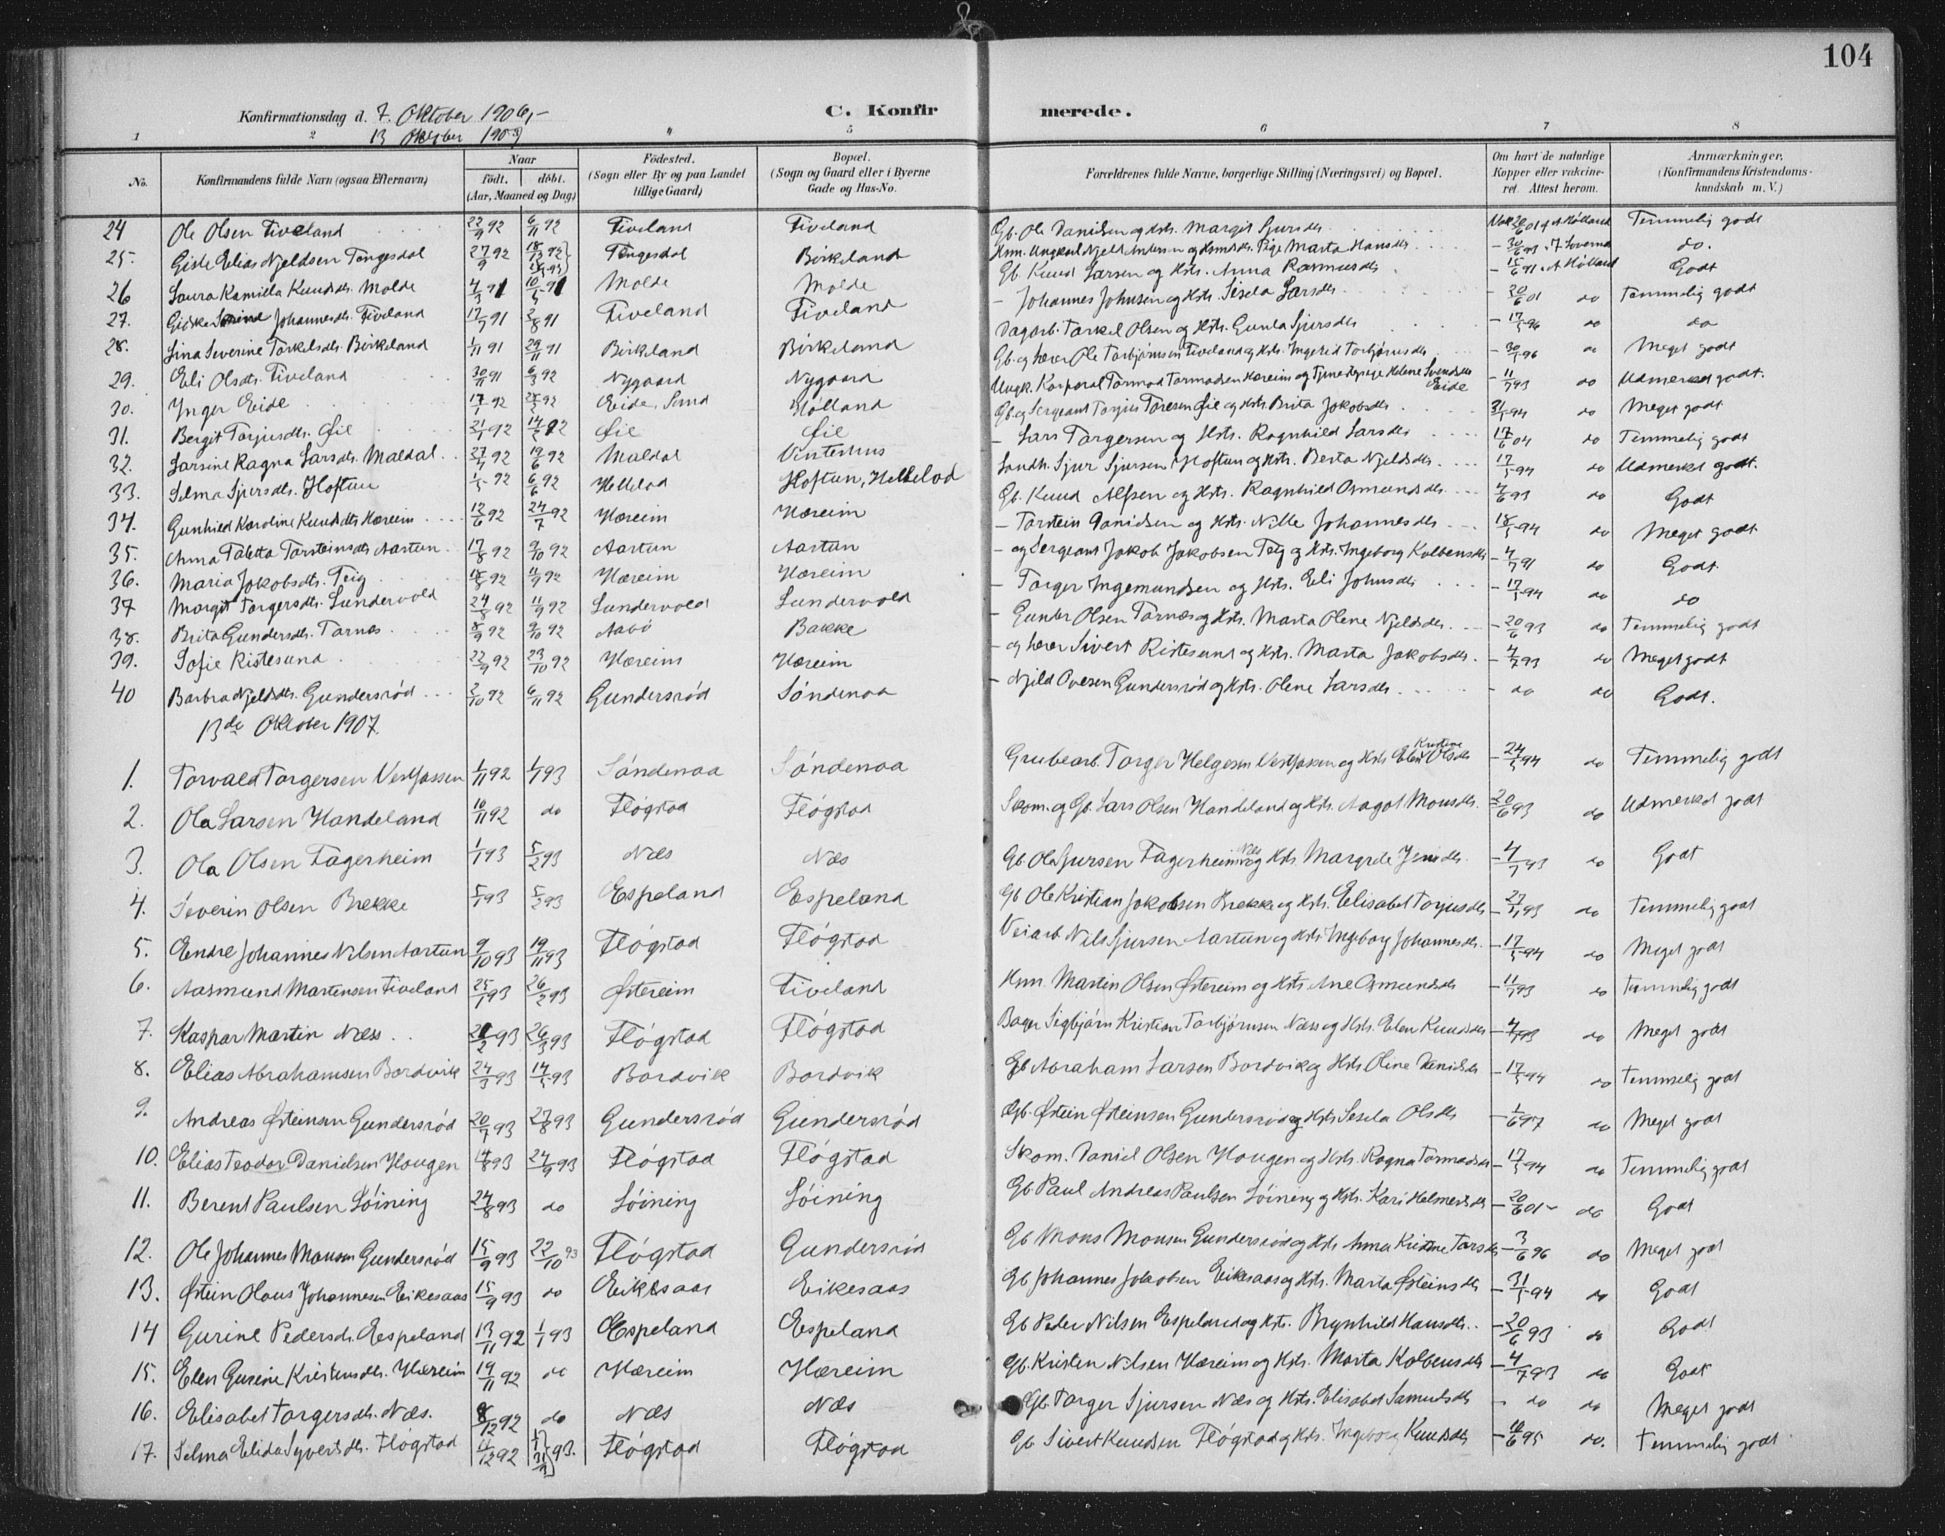 104
Konfirmationsdag d. 7. Oktober 1906,-
13 Oktober 1907
C. Konfirmerede.
1 2 " 5 6 7 8
No.
Konfirmandens fulde Navn (ogsaa Efternavn)
Naar
födt. döbt.
(Aar, Maaned og Dag)
Födested.
(Sogn eller By og paa Landet tillige Gaard)
Bopæl.
(Sogn og Gaard eller i Byerne Gade og Hus-No.
Forældrenes fulde Navne, borgerlige Stilling (Næringsvei) og Bopæl.
Om havt de naturlige Kopper eller vaccineret. Attest herom.
Anmærkninger.
(Konfirmandens Kristendomskundskab m. V.)
24 Ole Olsen Tiveland 22/9 92 6/11 92 Tiveland Tiveland Gb. Ole Danielsen og Hstr. Margit Sjursdtr. Temmelig godt
25. Giste Elias Njeldsen Tengesdal 27/9 92 Tengesdal Birkeland do.
26 Laura Kamilla Knudsdtr. Molde 4/3 91 10/5 91 Molde Molde Gb. Knud Larsen og Hstr. Anna Rasmusdtr. Godt
27. Johannesdtr. Tiveland 17/7 91 2/8 91 Tiveland Tiveland - Johannes Johnsen og Hstr. Sisela Larsdtr. - 20/6 01 do Temmelig godt
28. Lina Severine Torkelsdtr. Birkeland 1/11 91 29/11 91 Birkeland Birkeland Dagarb. Torkel Olsen og Hstr. Gunla Sjursdtr - 17/5 96 do do
29. Eli Olsdtr. Tiveland 30/11 91 6/3 92 Nygaard Nygaard Gb. og herer Ole Torbjörnsen Tiveland og Hstr. Ingerid Torbjörnsdtr - 30/5 96 do Meget godt
30. Inger Eide 17/1 92 Eide, Sund Hölland Ungk. Korporal Tormod Tormodsen Hæreim og Tjenestepige Helene Svendsen Eide - 11/7 93 do Udmerket godt.
31. Bergit Torjusdtr. Øie 21/1 92 14/2 92 Øie Øie Gb. og Sergeant Torjus Toresen Øie og Hstr. Brita Jakobsdtr 31/5 94 do Meget godt
32. Larsine Ragna Larsdtr. Maldal 92 19/6 92 Maldal Vinterhus - Lars Torgersen og Hstr. Ragnhild Larsdtr 17/6 04 do Temmelig godt
33. Selma Sjursdtr. Hoftun 92 6/6 92 Hellelad Hoftun, Hellelad Landh. Sjur Sjursen Hoftun og Hstr. Berta Njeldsdtr. 17/5 94 do Udmerket godt.
34. Gunhild Karoline Knudsdtr Hæreim 12/6 92 24/7 92 Hæreim Hæreim Gb. Knud Alfsen og Hstr. Ragnhild Osmundsdtr. 4/6 93 do Godt
35. Anna Taletta Torsteinsdtr Aartun 17/8 92 9/10 92 Aartun Aartun - Torstein Danielsen og Hstr. Nille Johannesdtr 18/5 94 do Meget godt
36. Maria Jakobsdtr. Teig 92 11/9 92 Hæreim Hæreim - og Sergeant Jakob Jakobsen Teig og Hstr. Ingeborg Kolbensdtr - 4/7 91 do Godt.
37 Margit Torgersdtr. Sundervold 24/8 92 11/9 92 Sundervold Sundervold - Torger Ingemundsen og Hstr. Eli Johnsdtr - 17/5 94 do do
38. Brita Gundersdtr. Tornæs 8/9 92 9/10 92 Aabö Bakke - Gunder Olsen Tornæs og Hstr. Marta Olene Njeldsdtr. - 20/6 93 do Temmelig godt
39. Sofie Ristesund 22/9 92 23/10 92 Hæreim Hæreim - og herer Sivert Ristesund og Hstr. Marta Jakobsdtr. - 4/7 93 do Meget godt
40 Barbra Njeldsdtr. Gundersröd 2/10 92 6/11 92 Gundersröd Söndenaa - Njeld Ovesen Gundersröd og Hstr. Olene Larsdtr. - do do Godt.
13de Oktober 1907.
1. Torvald Torgersen Vestfossen 1/11 92 1/1 93 Söndenaa Söndenaa Grubearb. Torger Helgesen Vestfossen og Hstr Elen Kristine Olsdtr - 24/5 94 do Temmelig godt
2. Ola Larsen Handeland 10/11 92 do Flógstad Flógstad Skom. og Gb. Lars Olsen Handeland og Hstr. Aagot Monsdtr. 20/6 93 do Udmerket godt
3. Ola Olsen Fagerheim 1/1 93 5/2 93 Næs Næs Gb. Ola Sjursen Fagerheim Næs og Hstr. Margrete Jensdtr. - 4/7 93 do Godt
4. Severin Olsen Brekke 5/1 93 5/2 93 Espeland Espeland Gb Ole Kristian Jakobsen Brekke og Hstr. Elisabet Torjusdtr 93 do Temmelig godt
5. Endre Johannes Nilsen Aartun 9/10 93 19/11 93 Flógstad Flógstad Veiarb. Nils Sjursen Aartun og Hstr Ingeborg Johannesdtr. - 17/5 94 do Meget godt
6. Aasmund Martensen Tiveland 25/1 93 26/2 93 Østereim Tiveland Hsm. Martin Olsen Østereim og Hstr. Ane Osmundsdtr - 11/7 93 do Temmelig godt
7. Kaspar Martin Næss 93 26/3 93 Flógstad Flógstad Bager Sigbjörn Kristian Torbjörnsen Næss og Hstr. Elen Knudsdtr - 4/7 93 do Meget godt
8. Elias Abrahamsen Bordvik 24/3 93 14/5 93 Bordvik Bordvik Gb Abraham Larsen Bordvik og Hstr Oline Danielsdtr - 17/5 94 do Temmelig godt
9. Andreas Østeinsen Gundersröd 20/7 93 27/8 93 Gundersröd Gundersröd Gb. Østein Østeinsen Gundersröd og Hstr Sesela Olsdtr - 1/6 97 do Meget godt
10. Elias Teodor Danielsen Haugen 14/8 93 24/9 93 Flógstad Flógstad Skom. Daniel Olsen Haugen og Hstr. Ragna Tormodsdtr - 17/5 94 do Temmelig godt
11. Berent Paulsen Löining 24/8 93 do Löining Löining Gb. Paul Andreas Paulsen Löining og Hstr. Kari Helmersdtr - 20/6 01 - do Godt
12. Ole Johannes Monsen Gundersröd 15/9 93 22/10 93 Flógstad Gundersröd Gb Mons Monsen Gundersröd og Hstr Anna Kristine Larsdtr - 3/6 96 do Meget godt
13. Østein Olaus Johannesen Eikesaas 15/9 93 do Eikesaas Eikesaas Gb Johannes Jakobsen Eikesaas og Hstr. Marta Østeinsdtr - 31/5 94 do Godt
14 Gurine Pedersdtr. Espeland 13/11 92 1/1 93 Espeland Espeland Gb Peder Nilsen Espeland og Hstr. Brynhild Hansdtr. - 20/6 93 do Godt
15. Elen Gurine Kristensdtr. Hæreim 19/11 92 do Hæreim Hæreim Gb. Kristen Nilsen Hæreim og Hstr. Marta Kolbensdtr - 4/7 93 do Godt
16. Elisabet Torgersdtr. Næs. 8/12 92 do Næs Næs Gb. Torger Sjursen Næs og Hstr. Elisabet Samuelsdtr - do do Meget godt
17. Selma Elida Syvertsdtr. Flógstad 11/12 92 93. Flógstad Flógstad Gb Sivert Knudsen Flógstad og Hstr. Ingeborg Knudsdtr 95 do. Temmelig godt